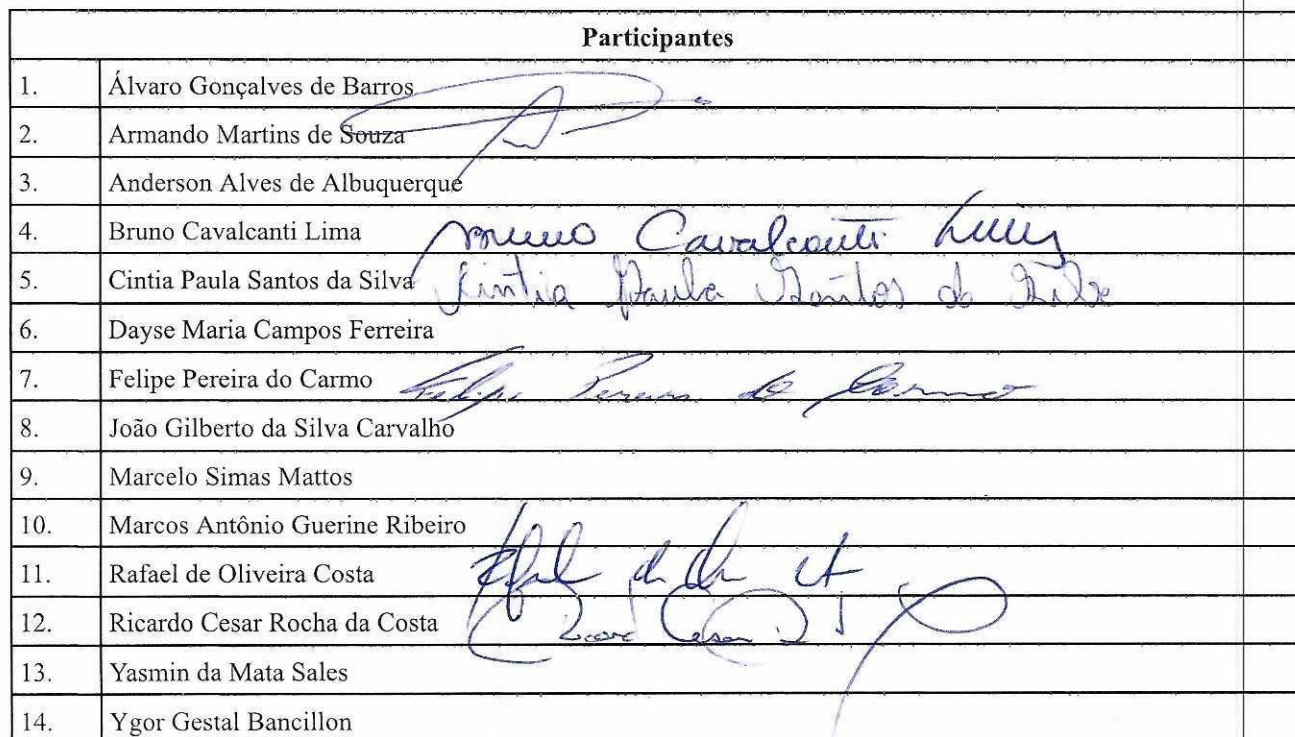 Participantes
1. Álvaro Gonçalves de Barros
2. Armando Martins de Souza
3. Anderson Alves de Albuquerque
4. Bruno Cavalcanti Lima Bruno Cavalcanti Lima
5. Cintia Paula Santos da Silva Cintia Paula Santos da Silva
6. Dayse Maria Campos Ferreira
7. Felipe Pereira do Carmo Felipe Pereira do Carmo
8. João Gilberto da Silva Carvalho
9. Marcelo Simas Mattos
10. Marcos Antônio Guerine Ribeiro
11. Rafael de Oliveira Costa
12. Ricardo Cesar Rocha da Costa
13. Yasmin da Mata Sales
14. Ygor Gestal Bancillon